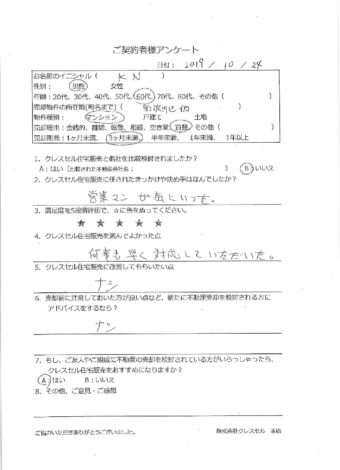 ご契約者様アンケート
日付： 2019 / 10 / 24
お名前のイニシャル（ K N ）
性別： 男性 女性
年齢：20代、30代、40代、50代、60代、70代、80代、その他（ ）
売却物件の所在地(町名まで)（
物件種別： マンション 戸建て 土地
売却理由：金銭的、離婚、転勤、相続、空き家、買替、その他（ ）
売却期間：1ヶ月未満、 3ヶ月未満、 半年未満、 1年未満、 1年以上
1．クレスセル住宅販売と他社を比較検討されましたか？
A：はい（比較された不動産会社名： ） B：いいえ
2．クレスセル住宅販売に任されたきっかけや決め手はなんでしたか？
営業マンが気にいった。
3．満足度を5段階評価で、☆に色をぬってください。
★ ★ ★ ★ ★
4．クレスセル住宅販売を選んでよかった点
何事も早く対応していただいた。
5．クレスセル住宅販売に改善してもらいたい点
ナシ
6．売却前に注意しておいた方が良い点など、新たに不動産売却を検討される方に
アドバイスをするなら？
ナシ
7．もし、ご友人やご親戚に不動産の売却を検討されている方がいらっしゃったら、
クレスセル住宅販売をおすすめになりますか？
A：はい B：いいえ
8．その他、ご意見・ご感想
ご協力いただきありがとうございました。
株式会社クレスセル 本店